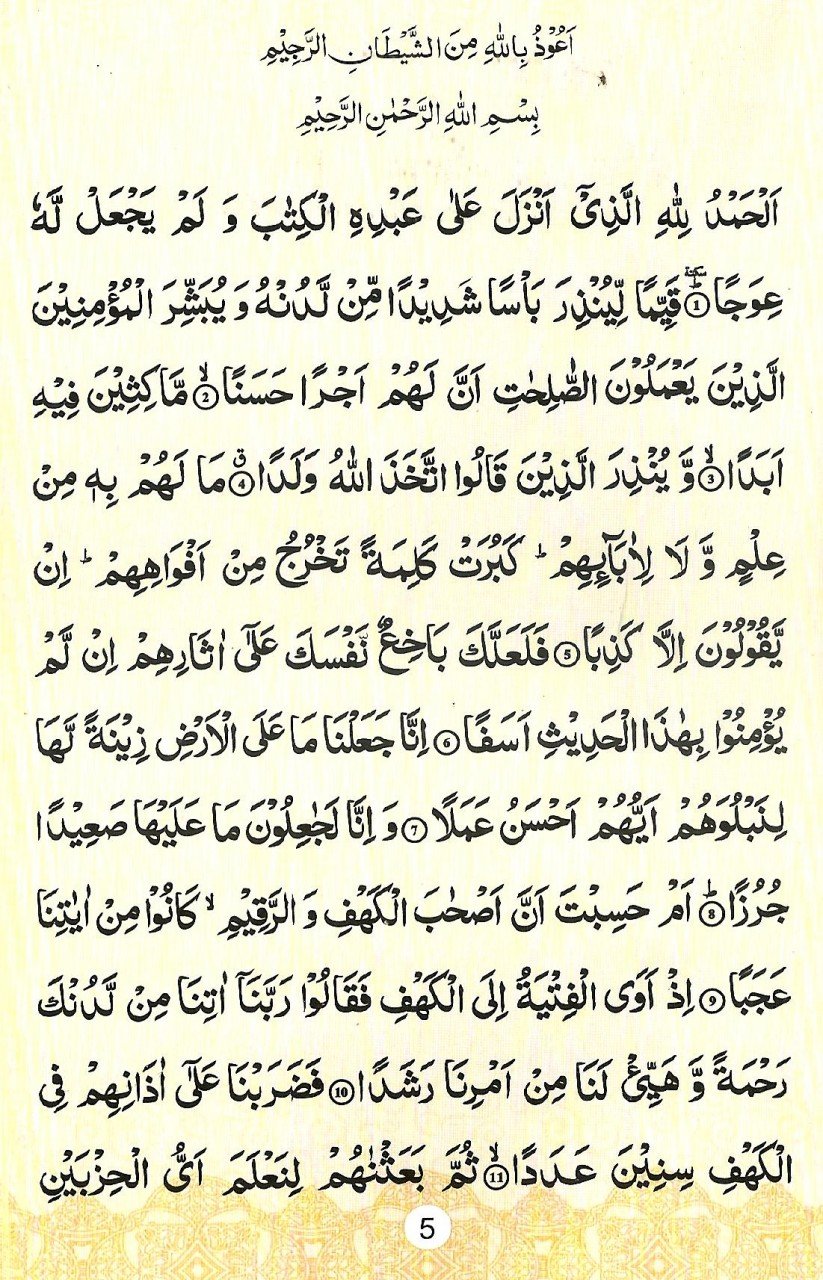 اَعُوْذُ بِاللّٰهِ مِنَ الشَّيْطَانِ الرَّجِيْمِ
بِسْمِ اللّٰهِ الرَّحْمٰنِ الرَّحِيْمِ
اَلْحَمْدُ لِلّٰهِ الَّذِیْۤ اَنْزَلَ عَلٰی عَبْدِهِ الْكِتٰبَ وَ لَمْ یَجْعَلْ لَّهٗ
عِوَجًا ؕ ۜ ﴿1﴾ قَیِّمًا لِّیُنْذِرَ بَاْسًا شَدِیْدًا مِّنْ لَّدُنْهُ وَ یُبَشِّرَ الْمُؤْمِنِیْنَ
الَّذِیْنَ یَعْمَلُوْنَ الصّٰلِحٰتِ اَنَّ لَهُمْ اَجْرًا حَسَنًا ۙ ﴿2﴾ مَّاكِثِیْنَ فِیْهِ
اَبَدًا ۙ ﴿3﴾ وَّ یُنْذِرَ الَّذِیْنَ قَالُوا اتَّخَذَ اللّٰهُ وَلَدًا ۗ ﴿4﴾ مَا لَهُمْ بِهٖ مِنْ
عِلْمٍ وَّ لَا لِاٰبَآىِٕهِمْ ؕ كَبُرَتْ كَلِمَةً تَخْرُجُ مِنْ اَفْوَاهِهِمْ ؕ اِنْ
یَّقُوْلُوْنَ اِلَّا كَذِبًا ﴿5﴾ فَلَعَلَّكَ بَاخِعٌ نَّفْسَكَ عَلٰۤی اٰثَارِهِمْ اِنْ لَّمْ
یُؤْمِنُوْا بِهٰذَا الْحَدِیْثِ اَسَفًا ﴿6﴾ اِنَّا جَعَلْنَا مَا عَلَی الْاَرْضِ زِیْنَةً لَّهَا
لِنَبْلُوَهُمْ اَیُّهُمْ اَحْسَنُ عَمَلًا ﴿7﴾ وَ اِنَّا لَجٰعِلُوْنَ مَا عَلَیْهَا صَعِیْدًا
جُرُزًا ؕ ﴿8﴾ اَمْ حَسِبْتَ اَنَّ اَصْحٰبَ الْكَهْفِ وَ الرَّقِیْمِ ۙ كَانُوْا مِنْ اٰیٰتِنَا
عَجَبًا ﴿9﴾ اِذْ اَوَی الْفِتْیَةُ اِلَی الْكَهْفِ فَقَالُوْا رَبَّنَاۤ اٰتِنَا مِنْ لَّدُنْكَ
رَحْمَةً وَّ هَیِّئْ لَنَا مِنْ اَمْرِنَا رَشَدًا ﴿10﴾ فَضَرَبْنَا عَلٰۤی اٰذَانِهِمْ فِی
الْكَهْفِ سِنِیْنَ عَدَدًا ۙ ﴿11﴾ ثُمَّ بَعَثْنٰهُمْ لِنَعْلَمَ اَیُّ الْحِزْبَیْنِ
5